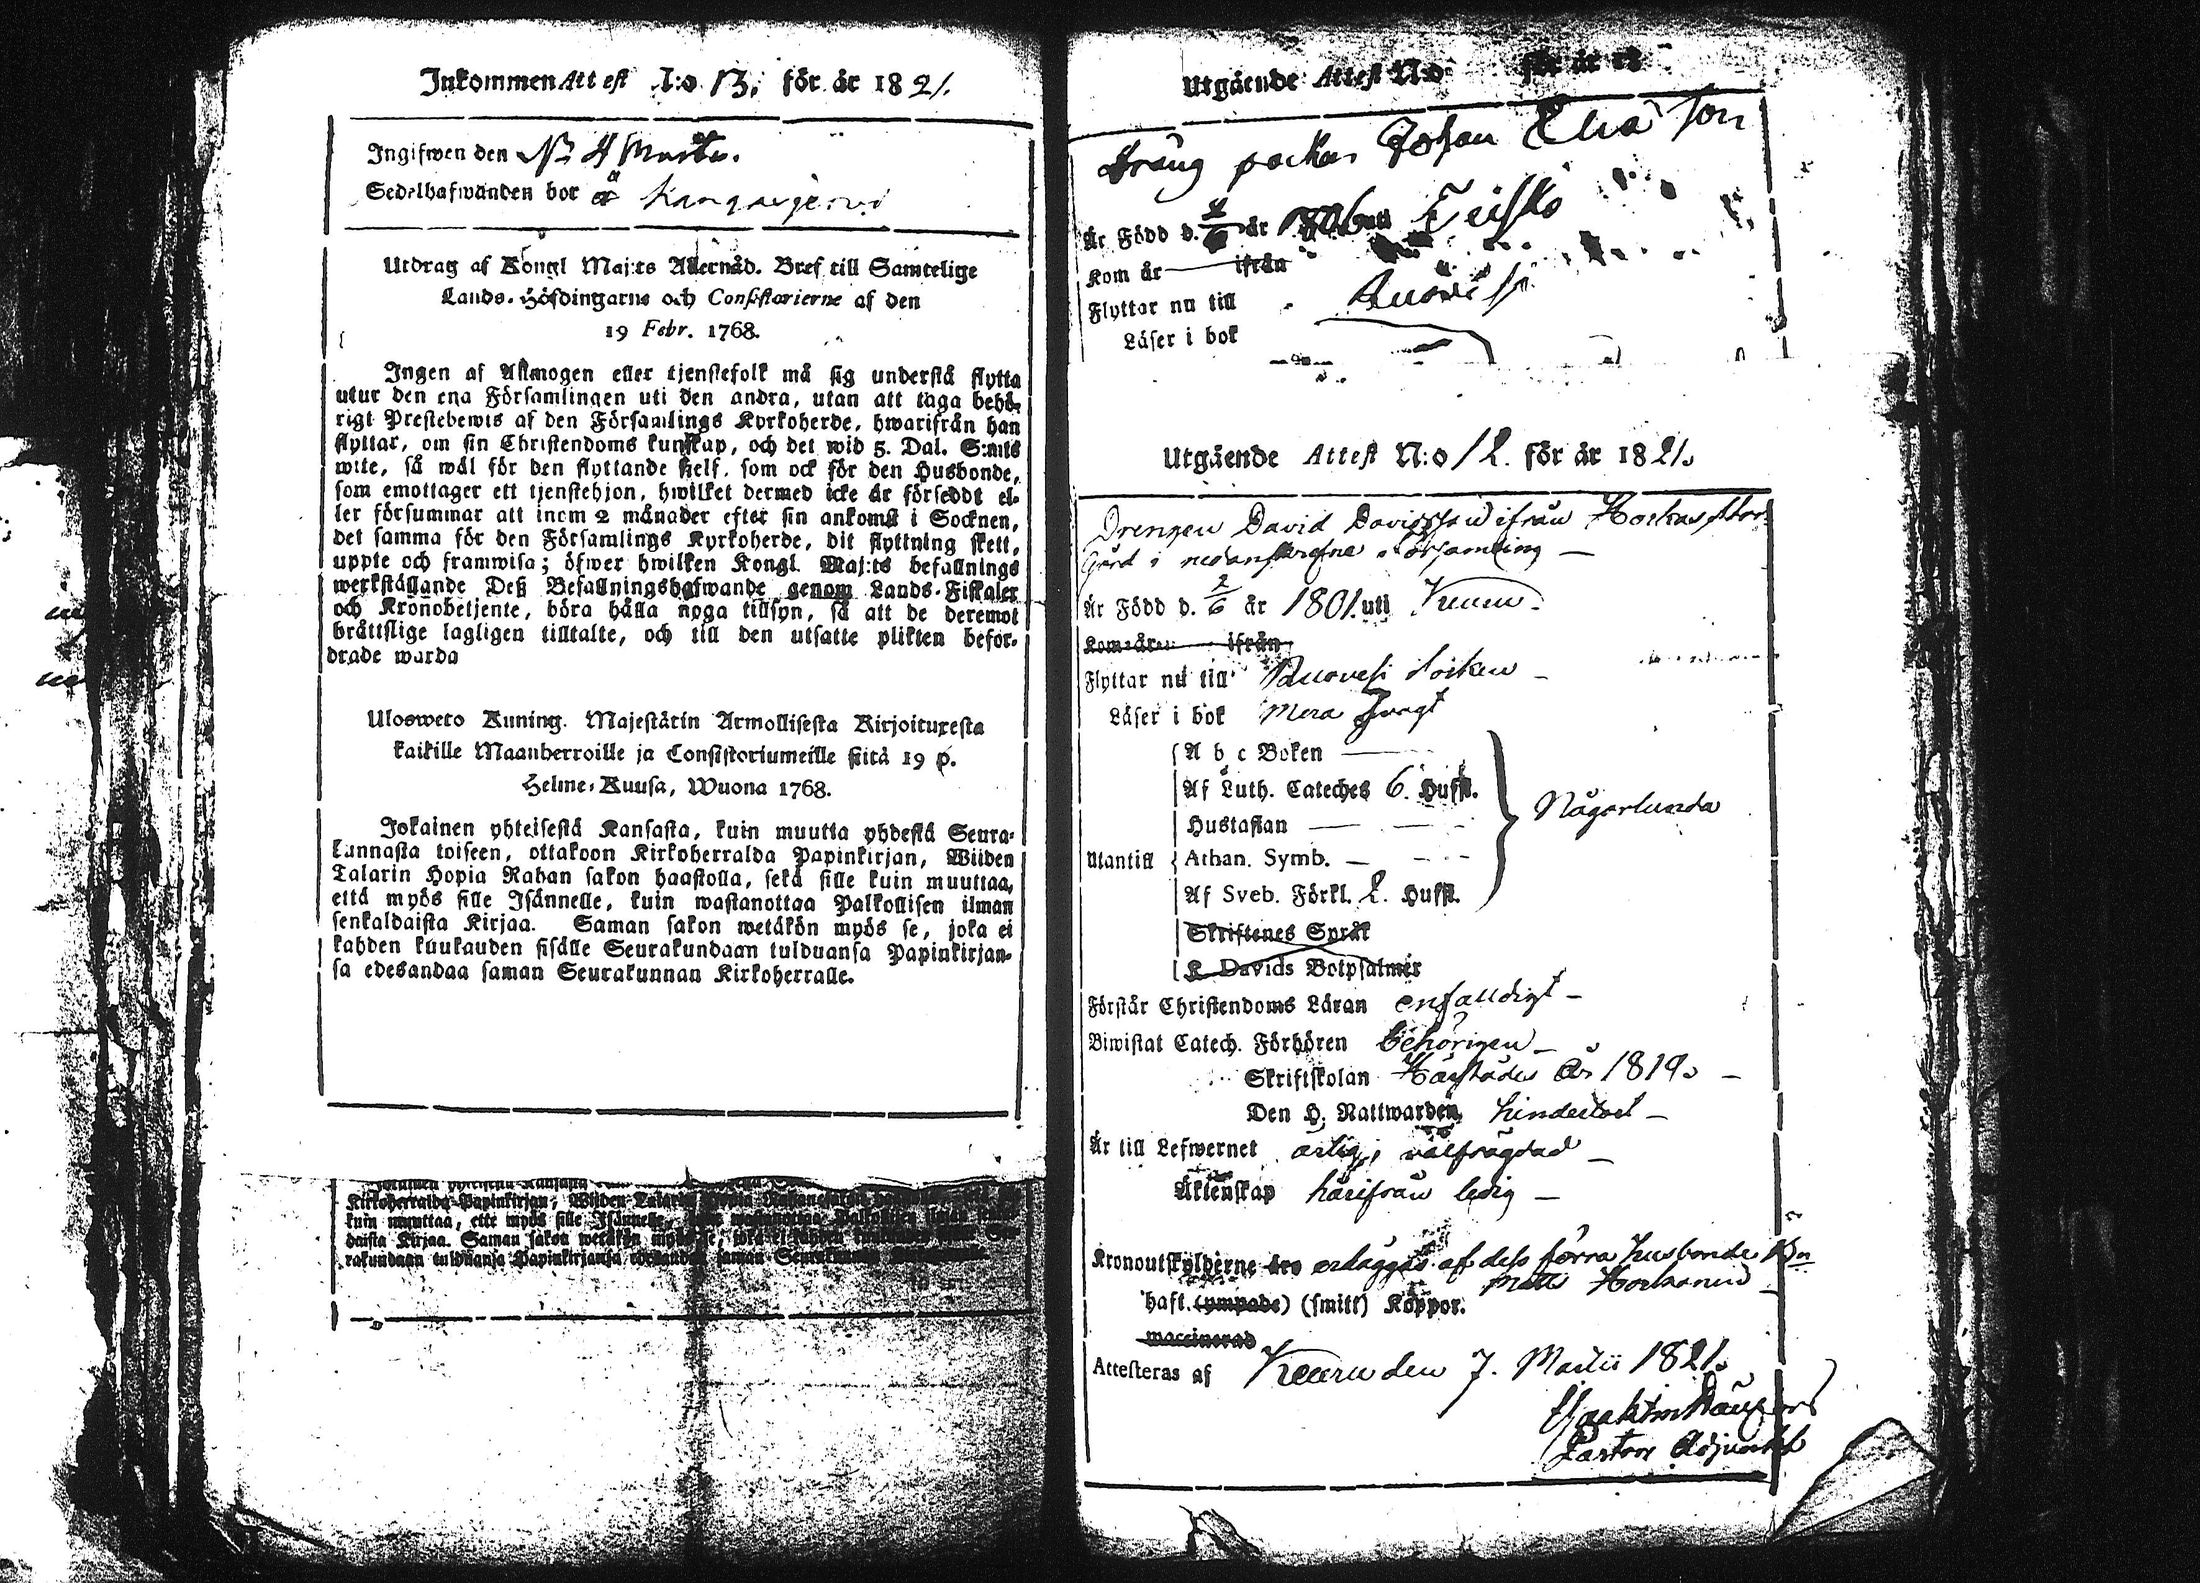 Inkommen Attest N:o 13. för år 1821.
Ingifwen den
Sedelhafwanden bor i Kangasjerwi
Utdrag af Kongl Maj:ts Allernåd. Bref till Samtelige
Lands-Höfdingarne och Consistorierne af den
19 Febr. 1768.
Ingen af Allmogen eller tjenstefolk må sig understå flytta
utur den ena Församlingen uti den andra, utan att taga behö-
rigt Prestebewis af den Församlings Kyrkoherde, hwarifrån han
flyttar, om sin Christendoms kunskap, och det wid 5. Dal. S:mts
wite, så wäl för den flyttande sjelf, som ock för den Husbonde,
som emottager ett tjenstehjon, hwilket dermed icke är förseddt el-
ler försummar att inom 2 månader efter sin ankomst i Socknen,
det samma för den Församlings Kyrkoherde, dit flyttning skett,
uppte och framwisa; öfwer hwilken Kongl. Maj:ts befallnings
werkställande Deß Befallningshafwande genom Lands-Fiskaler
och Kronobetjente, böra hålla noga tillsyn, så att de deremot
bråttslige lagligen tilltalte, och till den utsatte plikten befor-
drade warda
Ulosweto Kuning. Majestätin Armollisesta Kirjoituxesta
kaikille Maanherroille ja Consistoriumeille siitä 19 p.
Helme-Kuusa, Wuona 1768.
Jokainen yhteisestä Kansasta, kuin muutta yhdestä Seura-
kunnasta toiseen, ottakoon Kirkoherralda Papinkirjan, Wiiden
Talarin Hopia Rahan sakon haastolla, sekä sille kuin muuttaa,
että myös sille Isännelle, kuin wastanottaa Palkollisen ilman
senkaldaista Kirjaa. Saman sakon wetäkön myös se, joka ei
kahden kuukauden sisälle Seurakundaan tulduansa Papinkirjan-
sa edesandaa saman Seurakunnan Kirkoherralle.
Kirkoherralda Papinkirjan, Wiiden Talarin
kuin muuttaa, että myös sille Isännelle,
daista Kirjaa. Saman sakon wetäkön myös se, joka ei kahden
rakundaan tulduansa Papinkirjansa edesandaa saman Seurakunnan
Utgående Attest N:o för år 18
Dräng pockan Johan Elia Son
Är Född d. år 1806 uti Teisko
Kom år ifrån
Flyttar nu till Ruovesi
Läser i bok
Utgående Attest N:o 12. för år 1821.
Drengen David Davidsson ifrån Horkas Hor-
gård i nedanskrefne Församling
Är Född d. 2/6 år 1801. uti Keuru.
Kom år ifrån
Flyttar nu till Ruovesi Socken
Läser i bok Mera Svagt
A b c Boken
Af Luth. Cateches 6. Hufst.
Hustaflan
Utantill Athan. Symb.
Af Sveb. Förkl. 2. Hufst.
Någorlunda
Skriftenes Språk
K Davids Botpsalmer
Förstår Christendoms Läran enfalldigt
Biwistat Catech. Förhören behörigen
Skriftskolan Härstädes År 1819.
Den H. Nattwarden hinderlöst
Är till Lefwernet ärlig, välfrägdad
Äktenskap härifrån ledig
Kronoutskylderne äro erlaggas af dess förra husbonde
Matts Horkanen
haft. (ympade) (smitt) Koppor.
waccinerad
Attesteras af Keuru den 7. Martii 1821.
Pastors Adjunkt